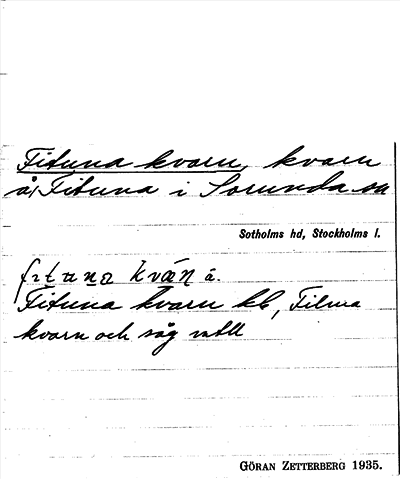 Fituna kvarn, kvarn
å, Fituna i Sorunda sn
Sotholms hd, Stockholms l.
Fituna kvarn kb, Filma
kvarn och såg mtll
GÖRAN ZETTERBERG 1935.